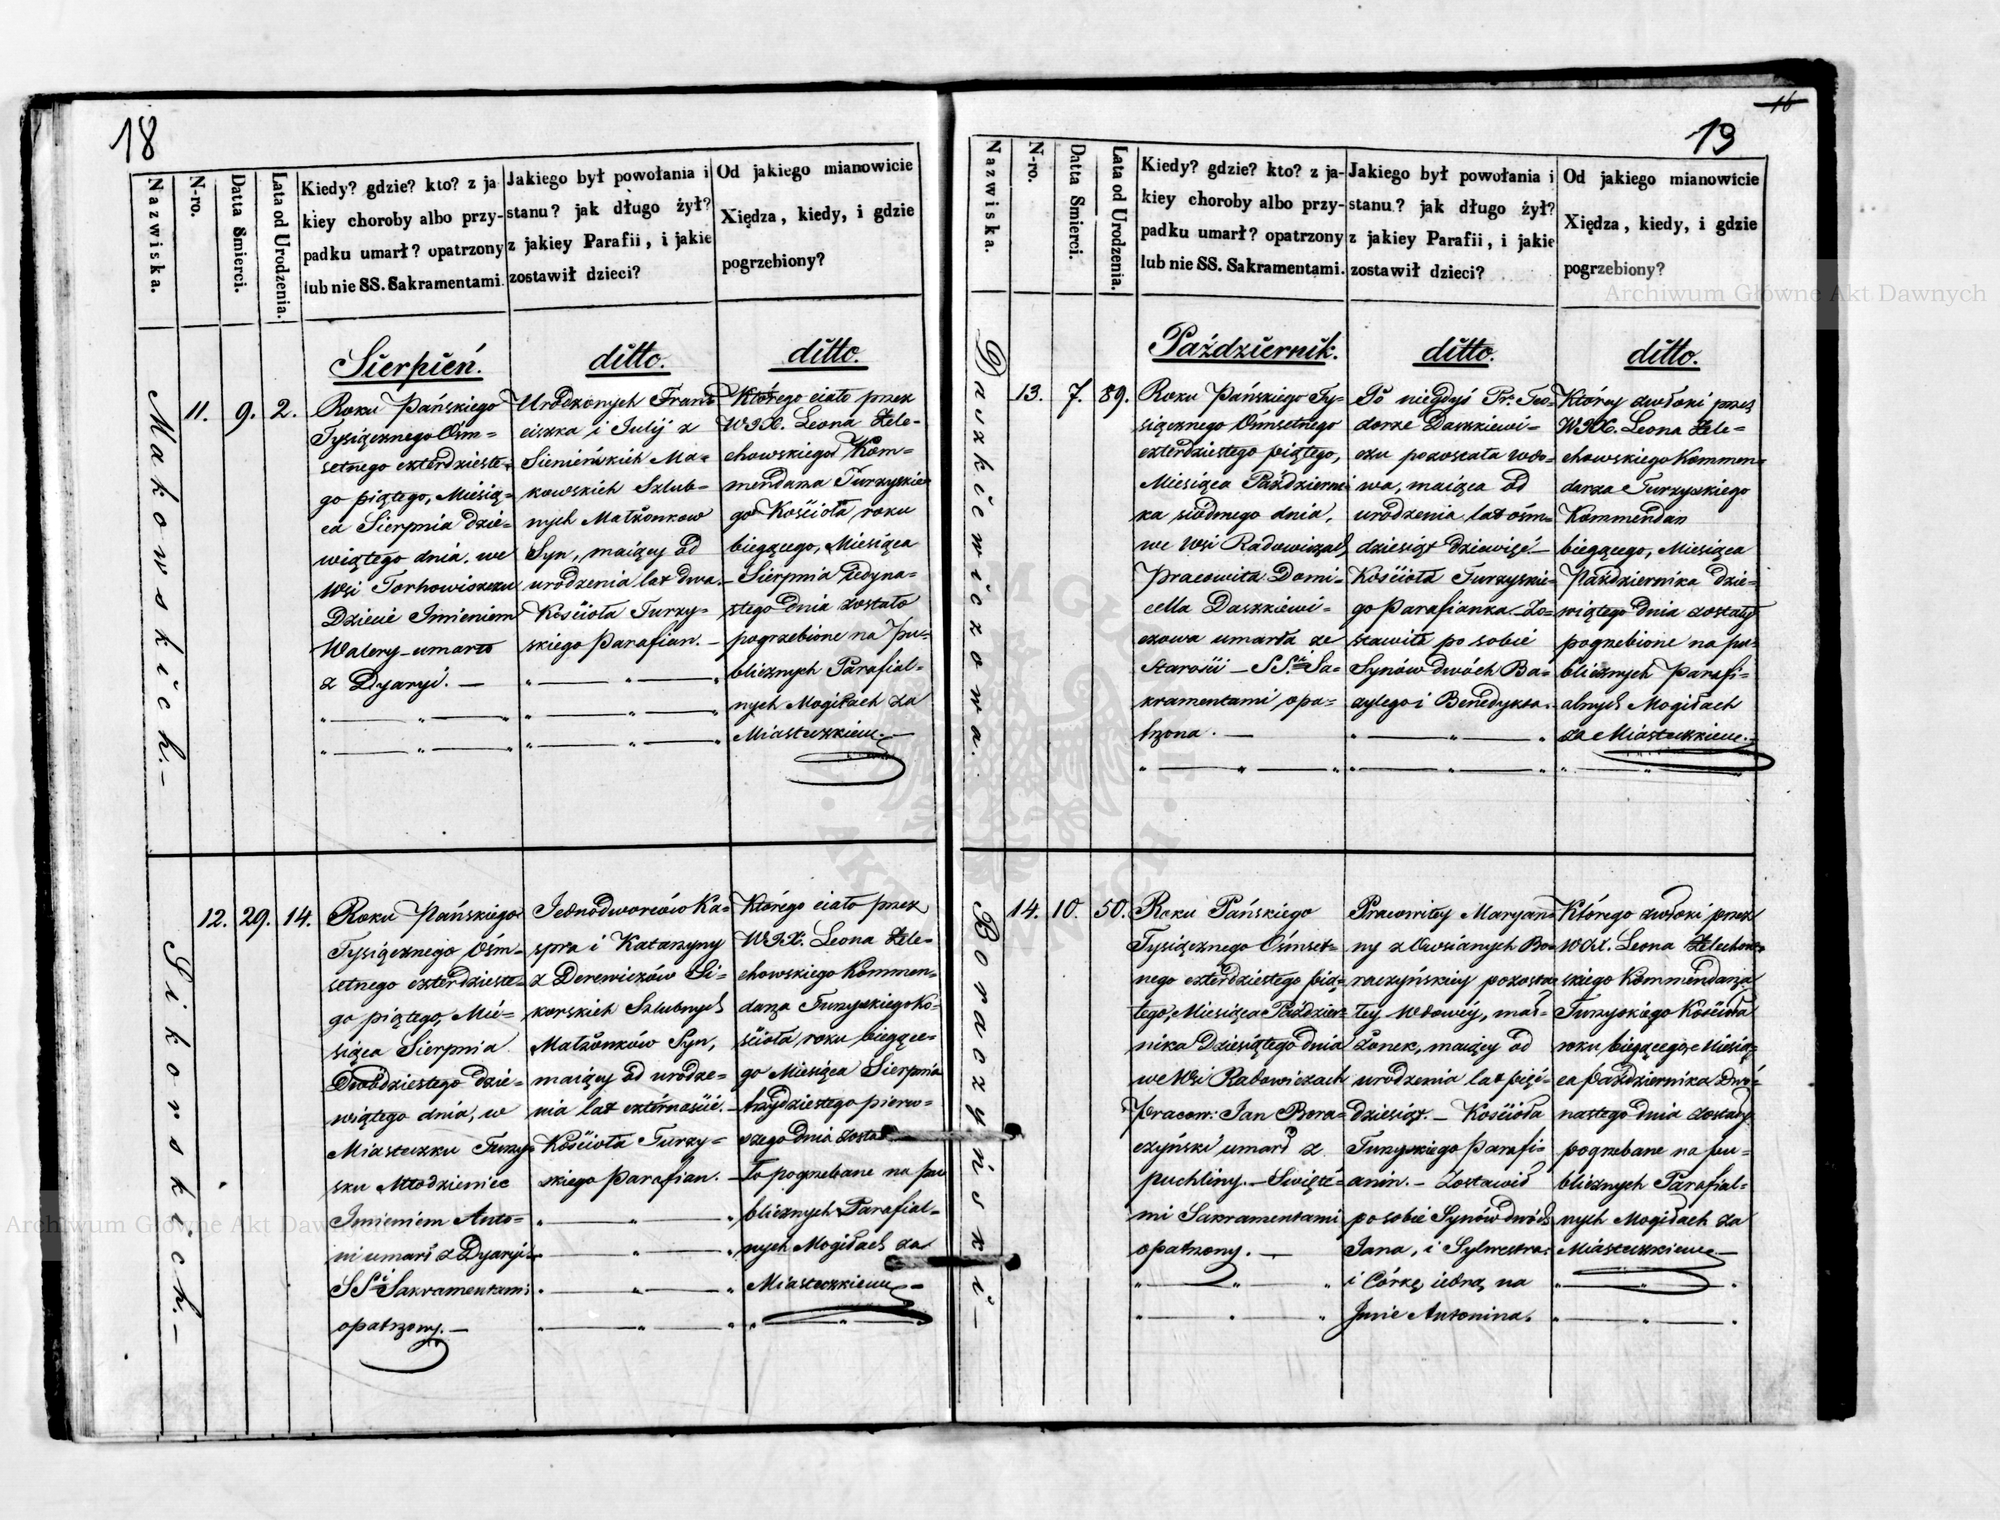 18
Nazwiska.
N-ro.
Datta Śmierci.
Lata od Urodzenia.
Kiedy? gdzie? kto? z ja
kiey choroby albo przy-
padku umarł? opatrzony
lub nie SS. Sakramentami.
Jakiego był powołania i
stanu? jak długo żył?
z jakiey Parafii, i jakie
zostawił dzieci?
Od jakiego mianowicie
Xiędza, kiedy, i gdzie
pogrzebiony?
Makowskich.—
11.
9.
2.
Sierpień.
Roku Pańskiego
Tysiącznego Ośm-
setnego czterdzieste-
go piątego, Miesią-
ca Sierpnia dzie-
wiątego dnia, we
Wsi Torhowiszczu
Dziecie Imieniem
Walery – umarło
z Dyaryi. —
ditto.
Urodzonych Fran
ciszka i Julij z
Sieniuńkich Ma-
kowskich Szlub-
nych Małżonkow
Syn, maiący od
urodzenia lat dwa.
Kościoła Turzy-
skiego Parafian. —
ditto.
Którego ciało przez
WJX. Leona Żele-
chowskiego Kom-
mendarza Turzyskie
go Kościoła, roku
biegącego, Miesiąca
Sierpnia Jedyna-
stego dnia zostało
pogrzebione na pu-
blicznych Parafial-
nych Mogiłach za
Miasteczkiem.—
Sikorskich.—
12.
29.
14.
Roku Pańskiego
Tysiącznego Ośm-
setnego czterdzieste-
go piątego, Mie-
siąca Sierpnia
Dwódziestego dzie-
wiątego dnia, w
Miasteczku Turzy-
sku Młodzieniec
Imieniem Anto-
ni umarł z Dyaryi
SSi Sakramentami
opatrzony.—
Jednodworców Ka-
spra i Katarzyny
z Derewiczów Si-
korskich Szlubnych
Małżonków Syn,
maiący od urodze-
nia lat czternaście.—
Kościoła Turzy-
skiego Parafian.—
Którego ciało przez
WJX. Leona Żele-
chowskiego Kommen-
darza Turzyskiego Ko-
ścioła, roku biegące-
go Miesiąca Sierpnia
trzydziestego pierw-
szego dnia zosta-
ło pogrzebane na pu
blicznych Parafial-
nych Mogiłach za
Miasteczkiem.—
16
19
Nazwiska.
N-ro.
Data Śmierci.
Lata od Urodzenia.
Kiedy? gdzie? kto? z ja-
kiey choroby albo przy-
padku umarł? opatrzony
lub nie SS. Sakramentami.
Jakiego był powołania i
stanu? jak długo żył?
z jakiey Parafii, i jakie
zostawił dzieci?
Od jakiego mianowicie
Xiędza, kiedy, i gdzie
pogrzebiony?
Archiwum Główne Akt Dawnych
Daszkiewiczowa.
13.
7.
89.
Październik.
Roku Pańskiego Ty-
siącznego Ośmsetnego
czterdziestego piątego,
Miesiąca Październi
ka siódmego dnia,
we Wsi Radowiczach
Pracowita Domi-
cella Daszkiewi-
czowa umarła ze
starości – SSi Sa-
kramentami opa-
trzona.—
ditto.
Po niegdyś Pr: Teo-
dorze Daszkiewi-
czu pozostała wdo-
wa, maiąca od
urodzenia lat ośm-
dziesiąt dziewięć—
Kościoła Turzyskie-
go Parafianka. Zo-
stawiła po sobie
Synów dwóch Ba-
zylego i Benedykta.
ditto.
Którey zwłoki przez
WJX. Leona Żele-
chowskiego Kommen-
darza Turzyskiego
Kommendan
biegącego, Miesiąca
Października dzie-
wiątego dnia zostały
pogrzebione na pu-
blicznych Parafi-
alnych Mogiłach
za Miasteczkiem.—
Boraczyński—
14.
10.
50.
Roku Pańskiego
Tysiącznego Ośmset-
nego czterdziestego pią-
tego, Miesiąca Paździer-
nika Dziesiątego dnia
we Wsi Radowiczach
Pracow: Jan Bora-
czyński umarł z
puchliny.—Święte-
mi Sakramentami
opatrzony.—
Pracowitey Maryan-
ny z Owsianych Bo-
raczyńskiey pozosta-
łey Wdowiey, mał-
żonek, maiący od
urodzenia lat pięć-
dziesiąt.— Kościoła
Turzyskiego Parafi-
anin.— Zostawił
po sobie Synów dwóch
Jana, i Sylwestra
i Córkę iedną na
Imie Antonina.
Którego zwłoki przez
WJX. Leona Żelechow-
skiego Kommendarza
Turzyskiego Kościoła
roku biegącego, Miesią-
ca Października Dwó-
nastego dnia zostały
pogrzebane na pu-
blicznych Parafial-
nych Mogiłach za
Miasteczkiem—
Archiwum Główne Akt Dawnych